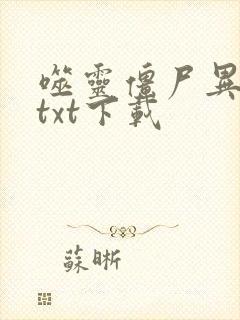 噬靈僵尸異
txt下載
蘇晰